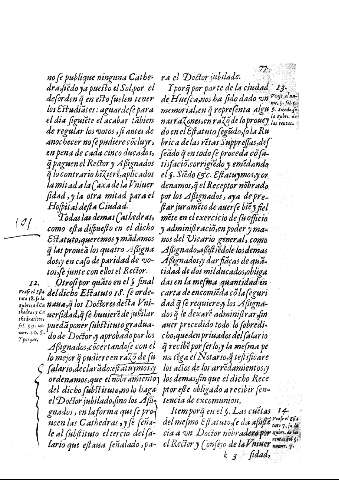 77
no se publique ninguna Cathe-
dra, siẽdo ya puesto el Sol, por el
desorden q̃ en esto suelen tener
los Estudiãtes: aguardese para
el dia siguiẽte el acabar tãbien
de regular los votos, si antes de
anochecer no se pudiere cõcluyr,
en pena de cinco ducados,
q̃ paguen el Rector y Asignados
q̃ lo contrario hiziere, aplicados
la mitad a la Caxa de la Vniuer
sidad, y la otra mitad para el
Hospital desta Ciudad.
Todas las demas Cathedras,
como esta dispuesto en el dicho
Estatuto, queremos y mãdamos
q̃ las proueã los quatro Asigna
dos, y en caso de paridad de vo-
tos se junte con ellos el Rector.
12.
Otrosi por quãto en el § final
del dichos Estatuto 18. se orde-
na, q̃ los Doctores desta Vni-
uersidad, q̃ se huuierẽ de jubilar
pueda poner substituto gradua-
do de Doctor y aprobado por los
Asignados, cõcertandose con el
lo mejor q̃ pudiere en razõ de su
salario, declarãdo estatuymos y
ordenamos, que el nõbramiento
del dicho substituto, no lo haga
el Doctor jubilado, sino los Asi-
gnados, en la forma que se pro-
ueen las Cathedras, y se seña-
le al substituto el tercio del sa-
lario que estaua señalado, pa-
ra el Doctor jubilado.
13.
Y porq̃ por parte de la ciudad
de Huesca, nos ha sido dado vn
memorial, en q̃ representa algu
nas razones, en razõ de lo proueỹ
do en el Estatuto segũdo, so la Ru
brica de las rẽtas Suppressas, des
seãdo q̃ en todo se proceda cõ sa-
tisfaciõ, corrigiẽdo y emẽdando
el §. Siẽdo &c. Estatuymos, y or-
denamos, q̃ el Receptor nõbrado
por los Asignados, aya de pre-
star juramẽto de auerse biẽ y fiel
mẽte en el exercicio de su officio
y administraciõ, en poder y ma-
nos del Vicario general, como
Asignado, assistiẽdo los demas
Asignados, y dar fiãças de quã-
tidad de dos mil ducados, obliga
das en la mesma quantidad en
carta de encomiẽda cõ la seguri
dad q̃ se requiere, y los Asigna-
dos, q̃ le dexarẽ administrar sin
auer precedido todo lo sobredi-
cho, queden priuados del salario
q̃ reciben por serlo, y la mesma pe
na tẽga el Notario, q̃ testificare
los años de los arrẽdamientos, y
los demas, sin que el dicho Rece
ptor este obligado a recibir sen-
tencia de excomunion.
14.
Item porq̃ en el §. Las cuẽtas
del mesmo Estatuto se da assistẽ
cia a vn Doctor nõbradero por
el Rector y Consejo de la Vniuer
k 3 sidad,